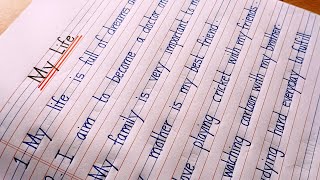 My Life
1. My life is full of dreams a
I aim to become a doctor in
My family is very important to me
mother is my best friend.
ove playing cricket with my friends
watching cartoon with my brother
udying hard everyday to fulfill